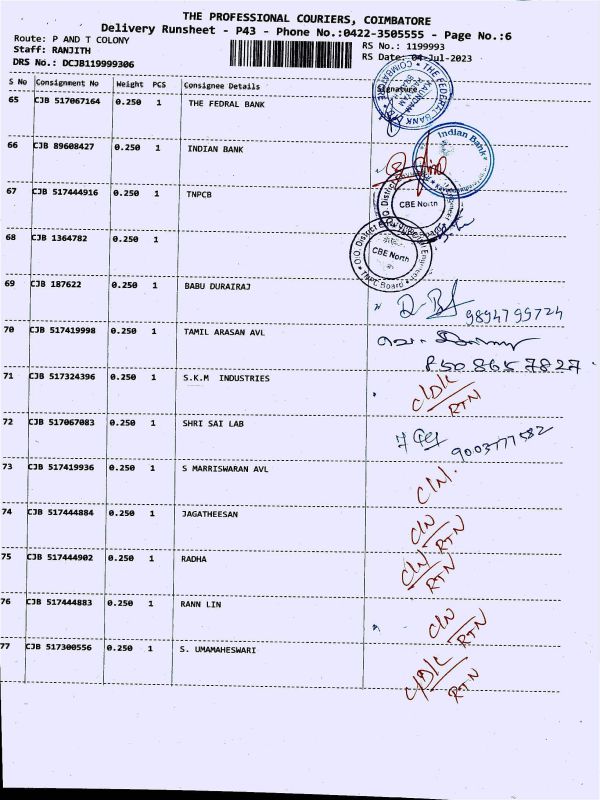 THE PROFESSIONAL COURIERS, COIMBATORE
Delivery Runsheet - P43 - Phone No.:0422-3505555 - Page No.:6
Route: P AND T COLONY
RS No.: 1199993
Staff: RANJITH
RS Date: 04-Jul-2023
DRS No.: DCJB119999306
S No Consignment No Weight PCS Consignee Details Signature
65 CJB 517067164 0.250 1 THE FEDRAL BANK
THE FEDERAL BANK
66 CJB 89608427 0.250 1 INDIAN BANK
Indian Bank
67 CJB 517444916 0.250 1 TNPCB
CBE North
68 CJB 1364782 0.250 1
CBE North
TNPC Board
69 CJB 187622 0.250 1 BABU DURAIRAJ
9894799724
70 CJB 517419998 0.250 1 TAMIL ARASAN AVL
71 CJB 517324396 0.250 1 S.K.M INDUSTRIES
RTN
72 CJB 517067083 0.250 1 SHRI SAI LAB
9003777582
73 CJB 517419936 0.250 1 S MARRISWARAN AVL
C/N.
74 CJB 517444884 0.250 1 JAGATHEESAN
C/N
RTN
75 CJB 517444902 0.250 1 RADHA
C/N
RTN
76 CJB 517444883 0.250 1 RANN LIN
C/N
RTN
77 CJB 517300556 0.250 1 S. UMAMAHESWARI
RTN